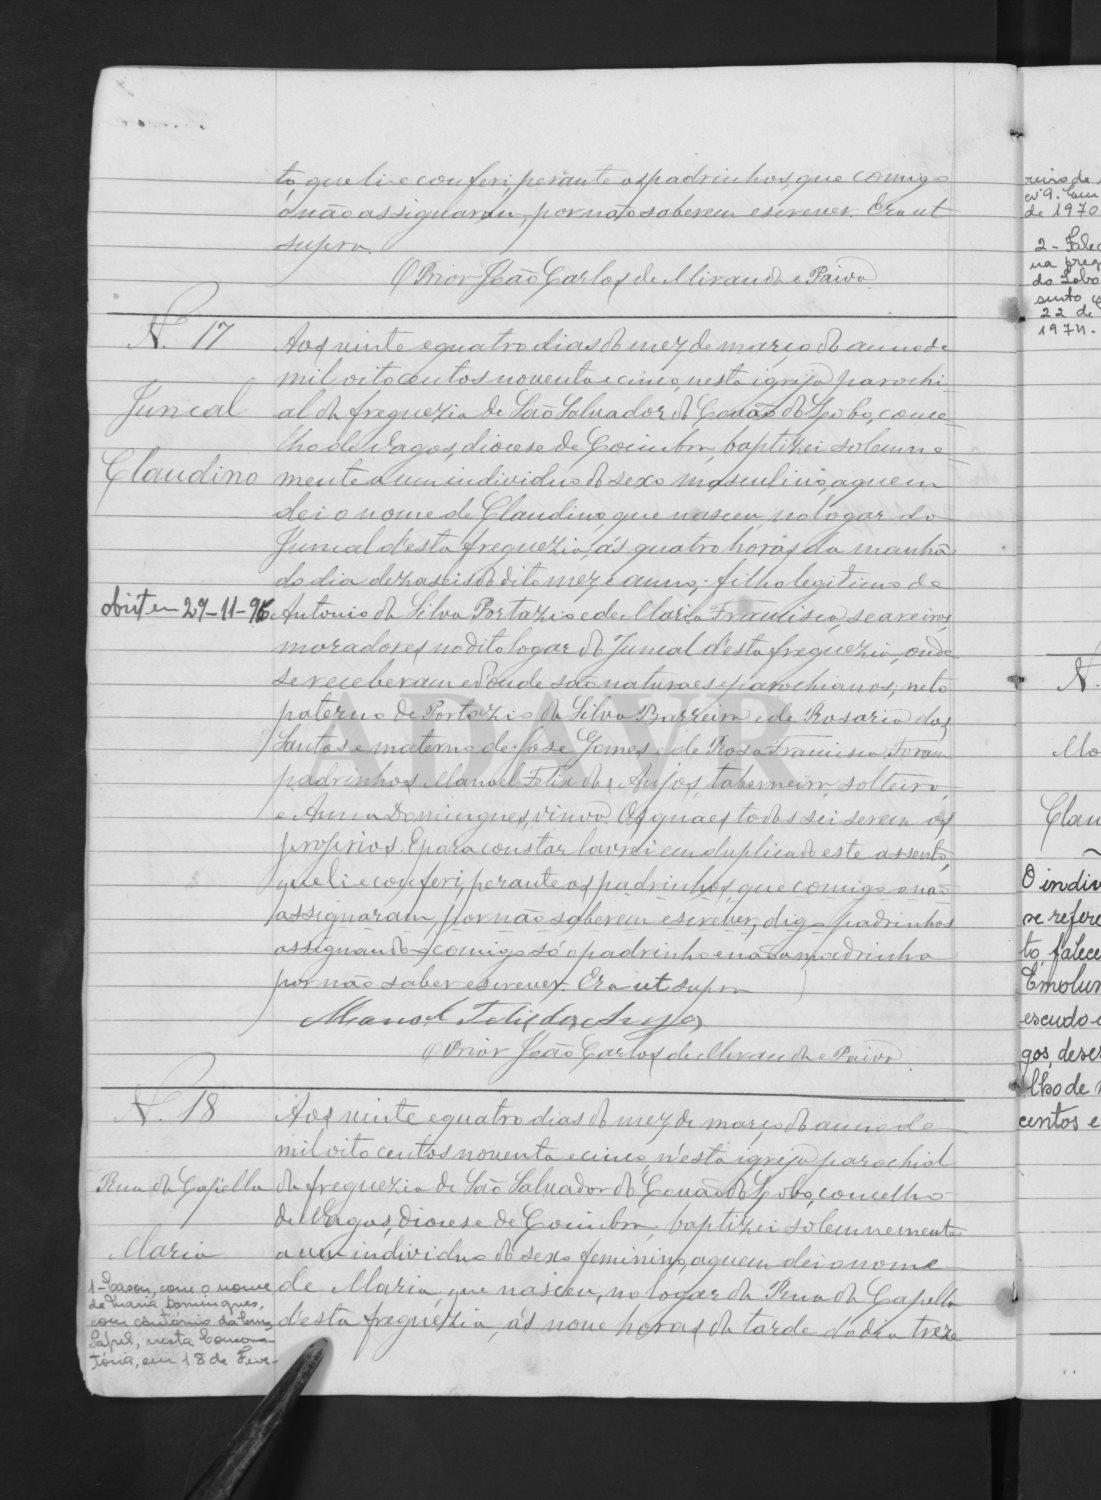 to, que li e conferi, perante os padrinhos, que comigo
o não assignaram, por não saberem escrever. Era ut
supra.
O Prior João Carlos de Miranda e Paiva.
N. 17
Juncal
Claudino
obiit em 27-11-95
Aos vinte e quatro dias do mez de março do anno de
mil oitocentos noventa e cinco, nesta igreja parochi
al da freguezia de São Salvador de Covão do Lobo, conce-
lho de Vagos, diocese de Coimbra, baptizei solemne-
mente a um individuo do sexo masculino, a quem
dei o nome de Claudino, que nasceu, no logar do
Juncal d'esta freguezia, ás quatro horas da manhã
do dia dezaseis do dito mez e anno; filho legitimo de
Antonio da Silva Portazio e de Maria Francisca, seareiros,
moradores no dito logar do Juncal d'esta freguezia, onde
se receberam e d'onde são naturaes e parochianos; neto
paterno de Portazio da Silva Barreira e de Rosaria dos
Santos e materno de José Gomes e de Rosa Francisca. Foram
padrinhos Manoel Felix dos Anjos, taberneiro, solteiro,
e Anna Domingues, viuva. Os quaes todos sei serem os
proprios. E para constar lavrei em duplicado este assento,
que li e conferi, perante os padrinhos, que comigo o não
assignaram, por não saberem escrever, digo padrinhos
assignando comigo só o padrinho e não a madrinha
por não saber escrever. Era ut supra
Manoel Felix dos Anjos
O Prior João Carlos de Miranda e Paiva.
N. 18
Rua da Capella
Maria
1-Casou, com o nome
de Maria Domingues,
com António da
nesta Conserva-
tória, em 18 de Feve-
Aos vinte e quatro dias do mez de março do anno de
mil oito centos noventa e cinco n'esta igreja parochial
da freguezia de São Salvador de Covão do Lobo, concelho
de Vagos, diocese de Coimbra, baptizei solemnemente
a um individuo do sexo feminino, a quem dei o nome
de Maria, que nasceu, no logar da Rua da Capella
d'esta freguezia, ás nove horas da tarde do dia treze
ADAVR
reiro de
nº 9. Em
de 1970
2- Falec
na freg
do Lobo
22 de
1974.
N.
Mo
Clau
O indiv
se refere
to, falece
Emolum
escudo e
gos, deze
lho de
centos e